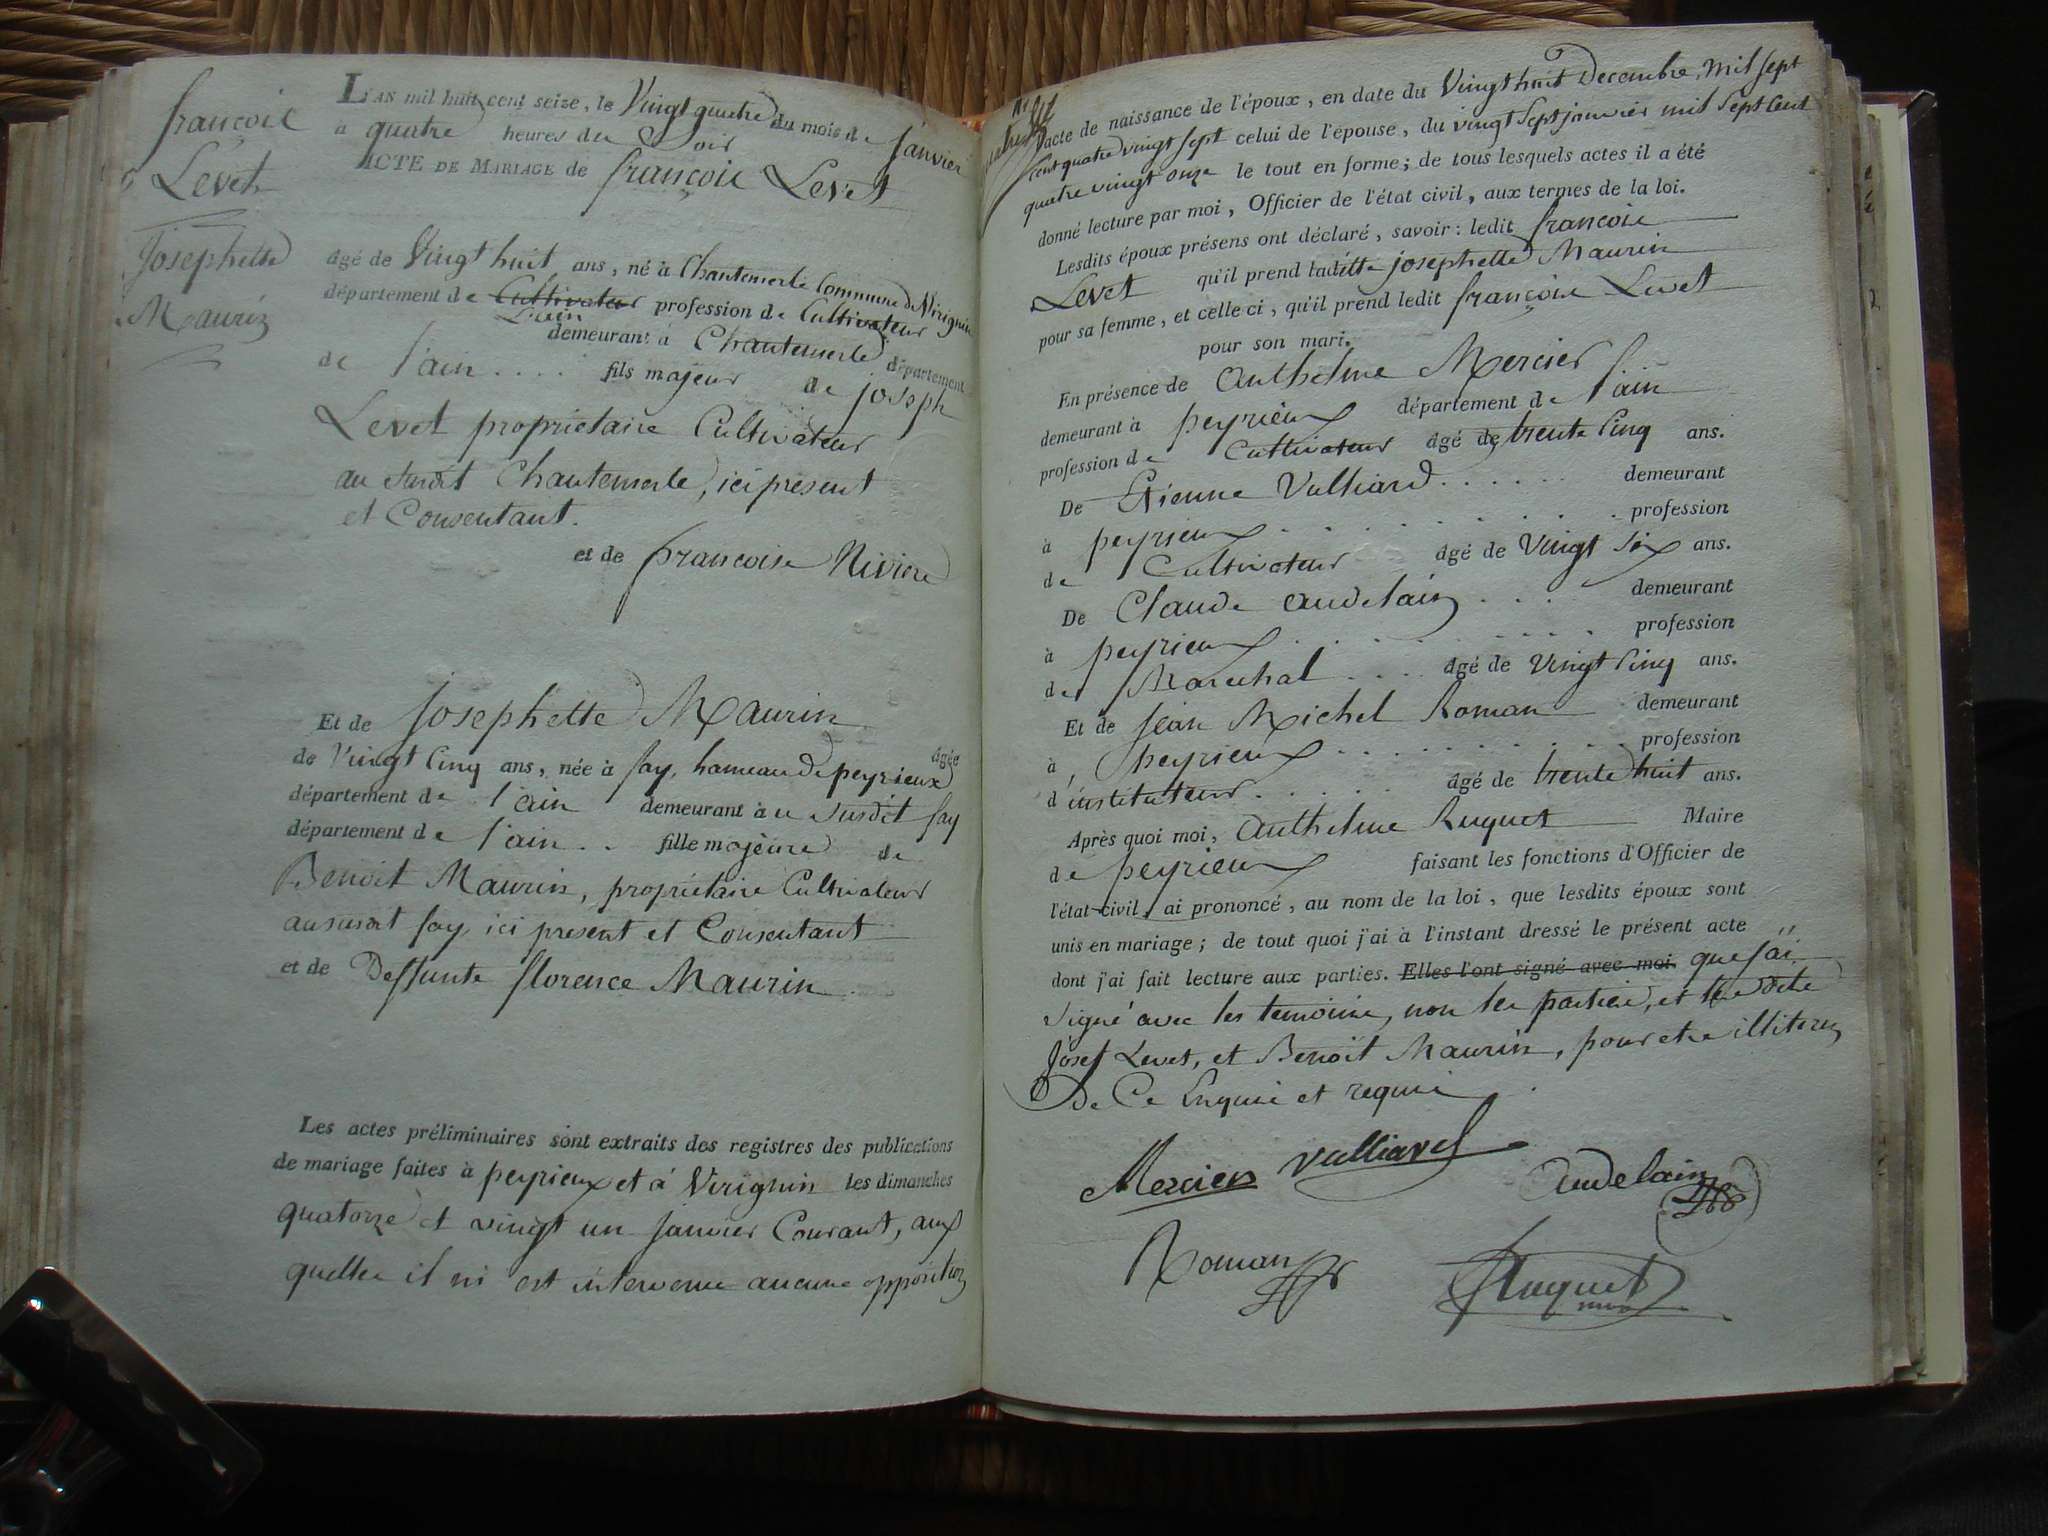 françois
Levet
Josephette
Maurin
L'AN mil huit cent seize, le Vingt quatre du mois de janvier
a quatre heures du Soir
ACTE DE MARIAGE de françois Levet
âgé de Vingt huit ans, né à Chantemerle Commune de Virignin
département de Cultivateur profession de Cultivateur
L'ain demeurant à Chantemerle département
de l'ain .... fils majeur de joseph
Levet propriétaire Cultivateur
au susdit Chantemerle, ici présent
et Consentant.
et de francoise Nivière
Et de Josephette Maurin âgée
de Vingt Cinq ans, née à fay, hameau de peyrieux
département de l'ain demeurant à u susdit fay
département de l'ain .. fille majeure de
Benoit Maurin, propriétaire Cultivateur
au susdit fay, ici présent et Consentant
et de Deffunte florence Maurin.
Les actes préliminaires sont extraits des registres des publications
de mariage faites à peyrieux et à Virignin les dimanches
quatorze et vingt un janvier Courant, aux
quelles il ni est intervenu aucune opposition
l'acte de naissance de l'époux, en date du Vingt huit Decembre, mil sept
Cent quatre vingt sept celui de l'épouse, du vingt sept janvier mil sept Cent
quatre vingt onze le tout en forme; de tous lesquels actes il a été
donné lecture par moi, Officier de l'état civil, aux termes de la loi.
Lesdits époux présens ont déclaré, savoir: ledit francois
Levet qu'il prend ladite josephette Maurin
pour sa femme, et celle ci, qu'il prend ledit françois Levet
pour son mari.
En présence de Anthelme Mercier
demeurant à peyrieux département de l'ain
profession de Cultivateur âgé de trente Cinq ans.
De Etienne Vulliard ...... demeurant
à peyrieux .......... profession
de Cultivateur âgé de Vingt Six ans.
De Claude Audelain ... demeurant
à peyrieux .......... profession
de Marechal .... âgé de Vingt Cinq ans.
Et de Jean Michel Roman demeurant
à peyrieux .......... profession
d'instituteur ..... âgé de trente huit ans.
Après quoi moi, Anthelme Ruguet Maire
de peyrieux faisant les fonctions d'Officier de
l'état civil, ai prononcé, au nom de la loi, que lesdits époux sont
unis en mariage; de tout quoi j'ai à l'instant dressé le présent acte
dont j'ai fait lecture aux parties. Elles l'ont signé avec moi. que j'ai
signé avec les temoins, non les parties, et lesdits
Josef Levet, et Benoit Maurin, pour etre illiterés
De Ce Enquis et requis
Mercier Vulliard
Audelain
Roman
Ruguet